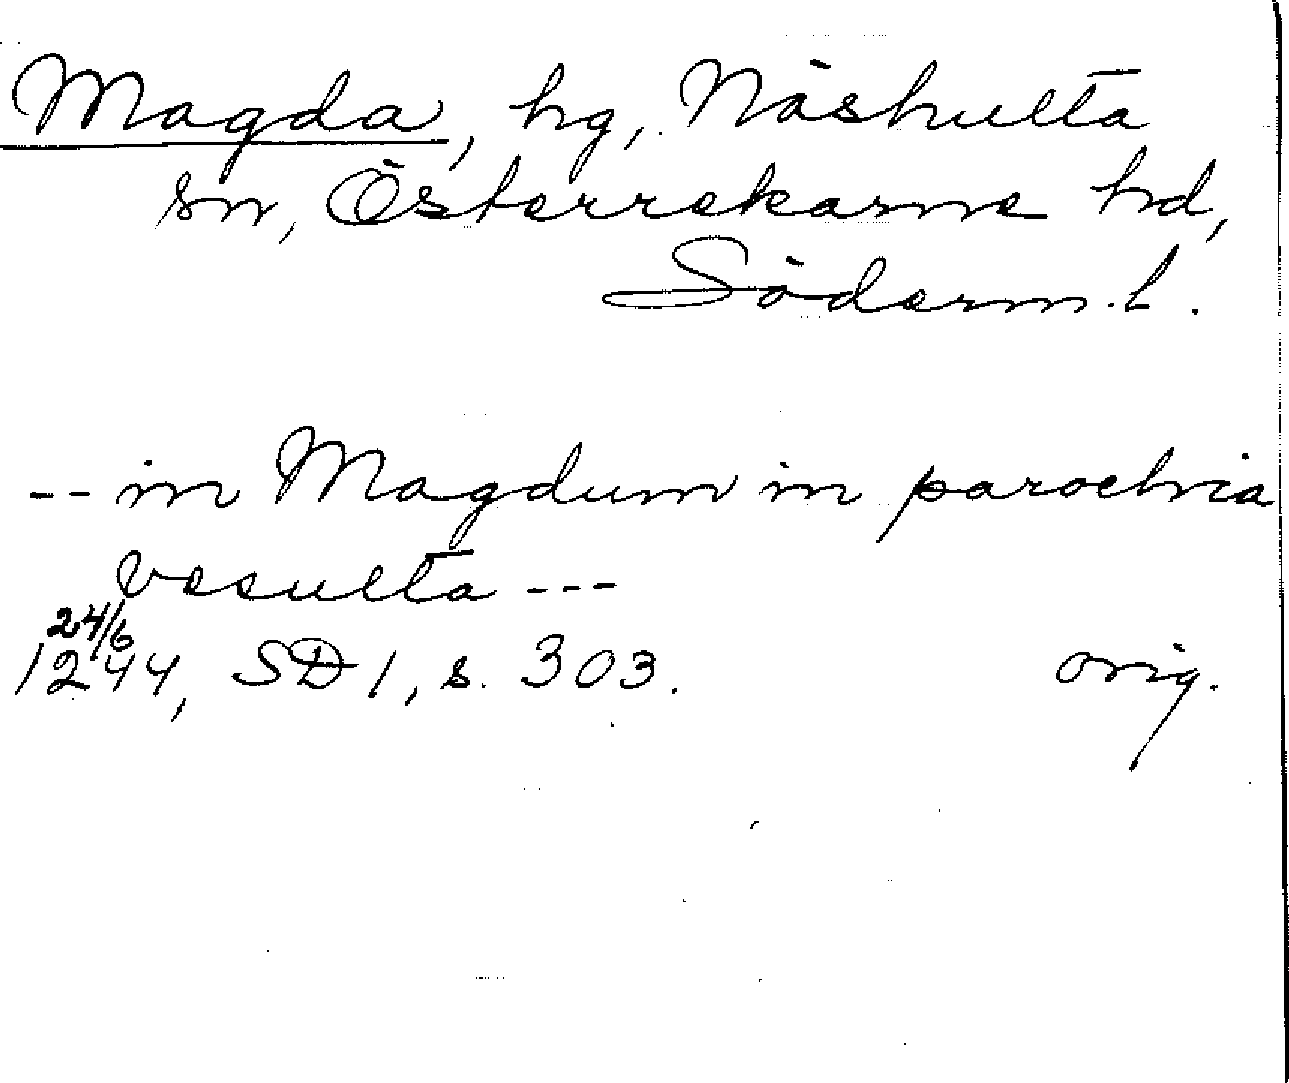 Magda, hg, Näshulta
sn, Österrekarne hd,
Söderm. l.
-- in Magdum in parochia
vesulta ---
24/6
1244, SD 1, s. 303. orig.